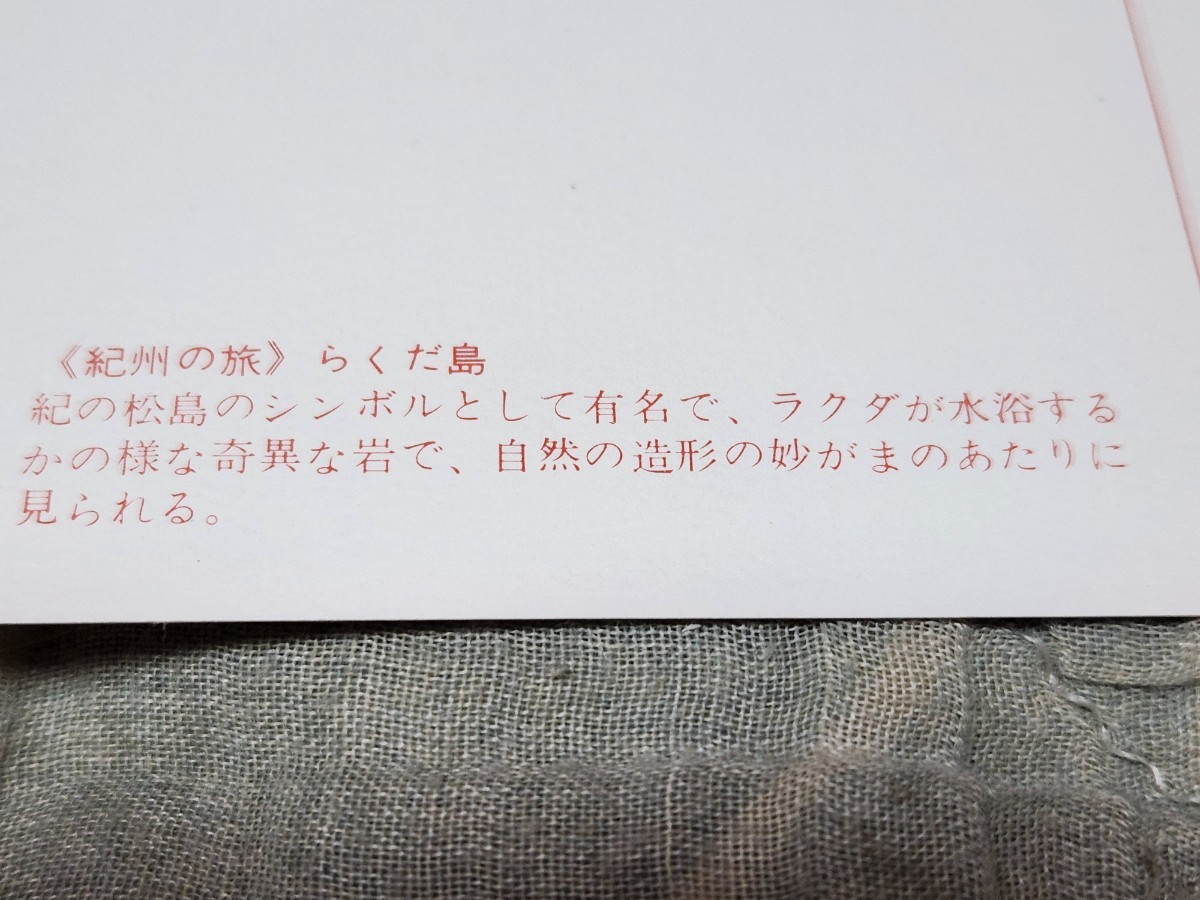 《紀州の旅》らくだ島
紀の松島のシンボルとして有名で、ラクダが水浴する
かの様な奇異な岩で、自然の造形の妙がまのあたりに
見られる。